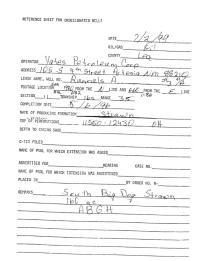 REFERENCE SHEET FOR UNDESIGNATED WELLS
DATE 2/2/99
OIL/GAS Oil
COUNTY Lea
OPERATOR Yates Petroleum Corp
ADDRESS 105 S 4th Street Artesia NM 88210
LEASE NAME, WELL NO. Runnels A
FOOTAGE LOCATION FROM THE N LINE AND 660 FROM THE E LINE
SECTION 11 TOWNSHIP 16s RANGE 35
COMPLETION DATE
NAME OF PRODUCING FORMATION Strawn
TOP OF PERFORATIONS OH
DEPTH TO CASING SHOE
C-123 FILED
NAME OF POOL FOR WHICH EXTENSION WAS ASKED
ADVERTISED FOR HEARING CASE NO.
NAME OF POOL FOR WHICH EXTENSION WAS ADVERTISED
PLACED IN BY ORDER NO. R-
REMARKS South Big Dog Strawn
160 ac
ABGH